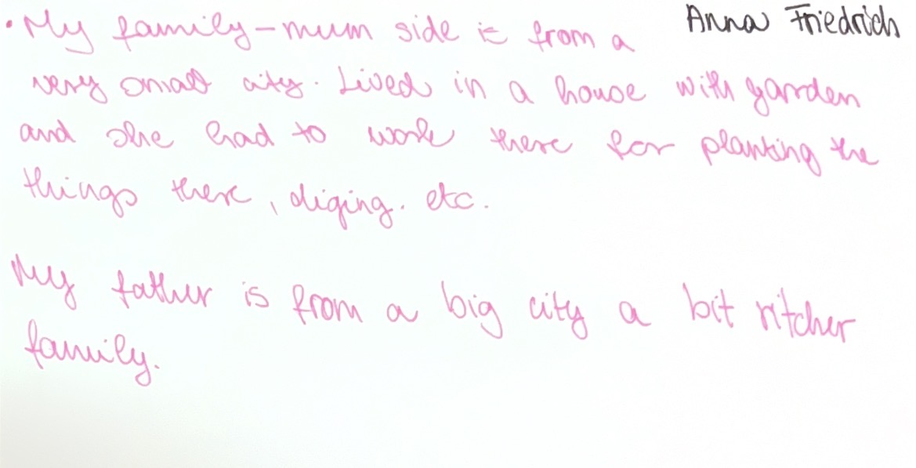 Anna Friedrich
• My family - mum side is from a
very small city. Lived in a house with garden
and she had to work there for planting the
things there, diging. etc.
My father is from a big city a bit ritcher
family.